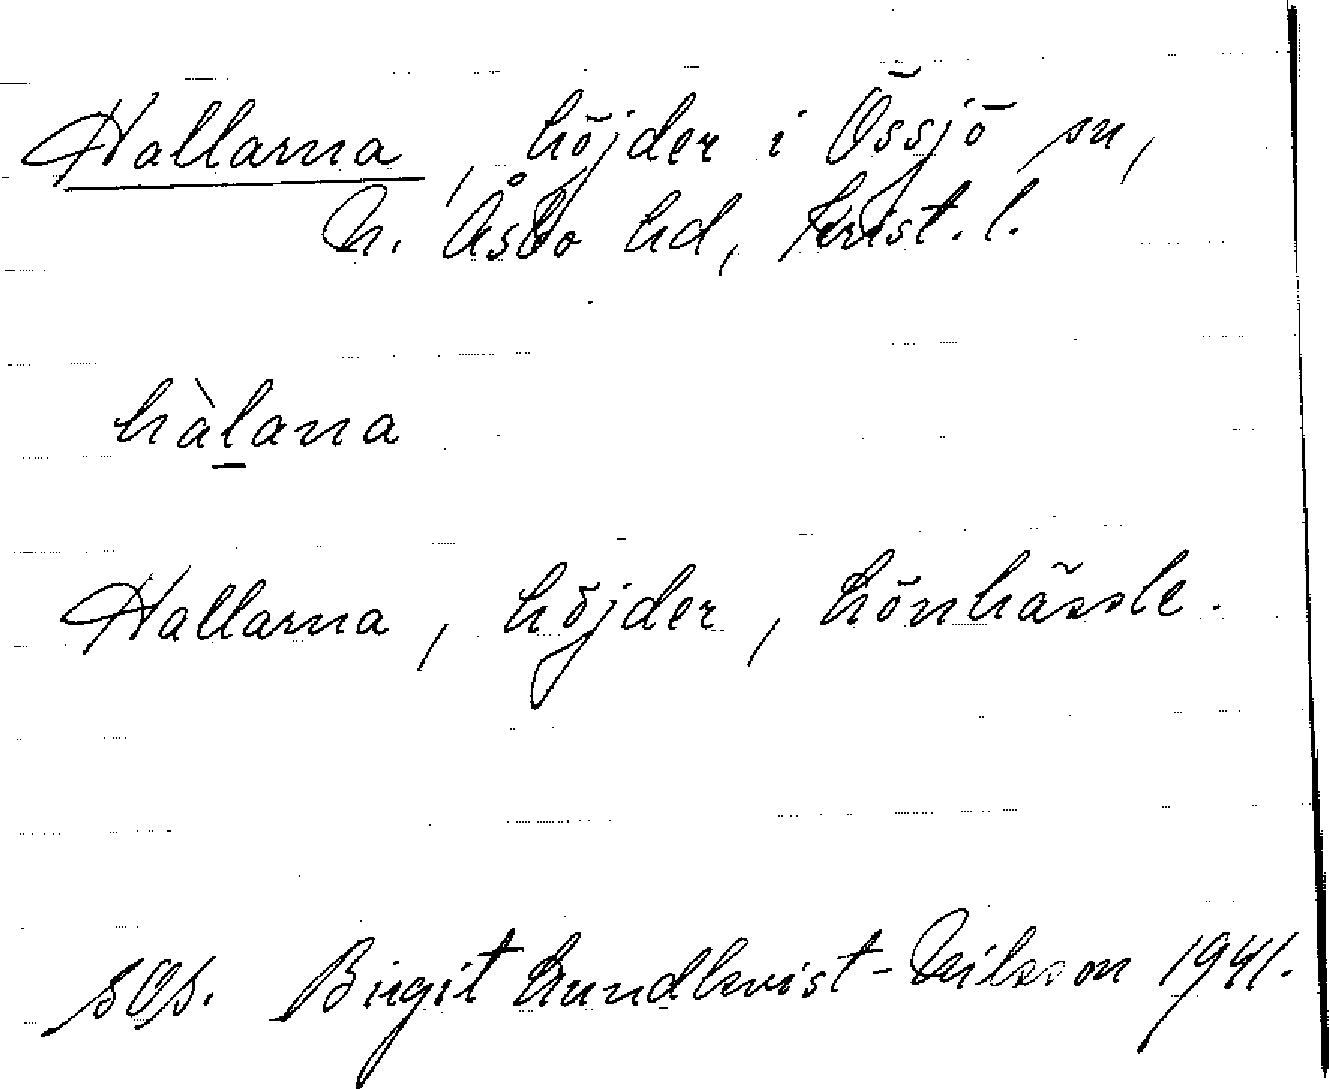 Hallarna, höjder i Össjö sn,
N. Åsbo hd, Krist. l.
hàlana
Hallarna, höjder, Lönhässle.
sOs. Birgit Lundkvist-Nilsson 1941.